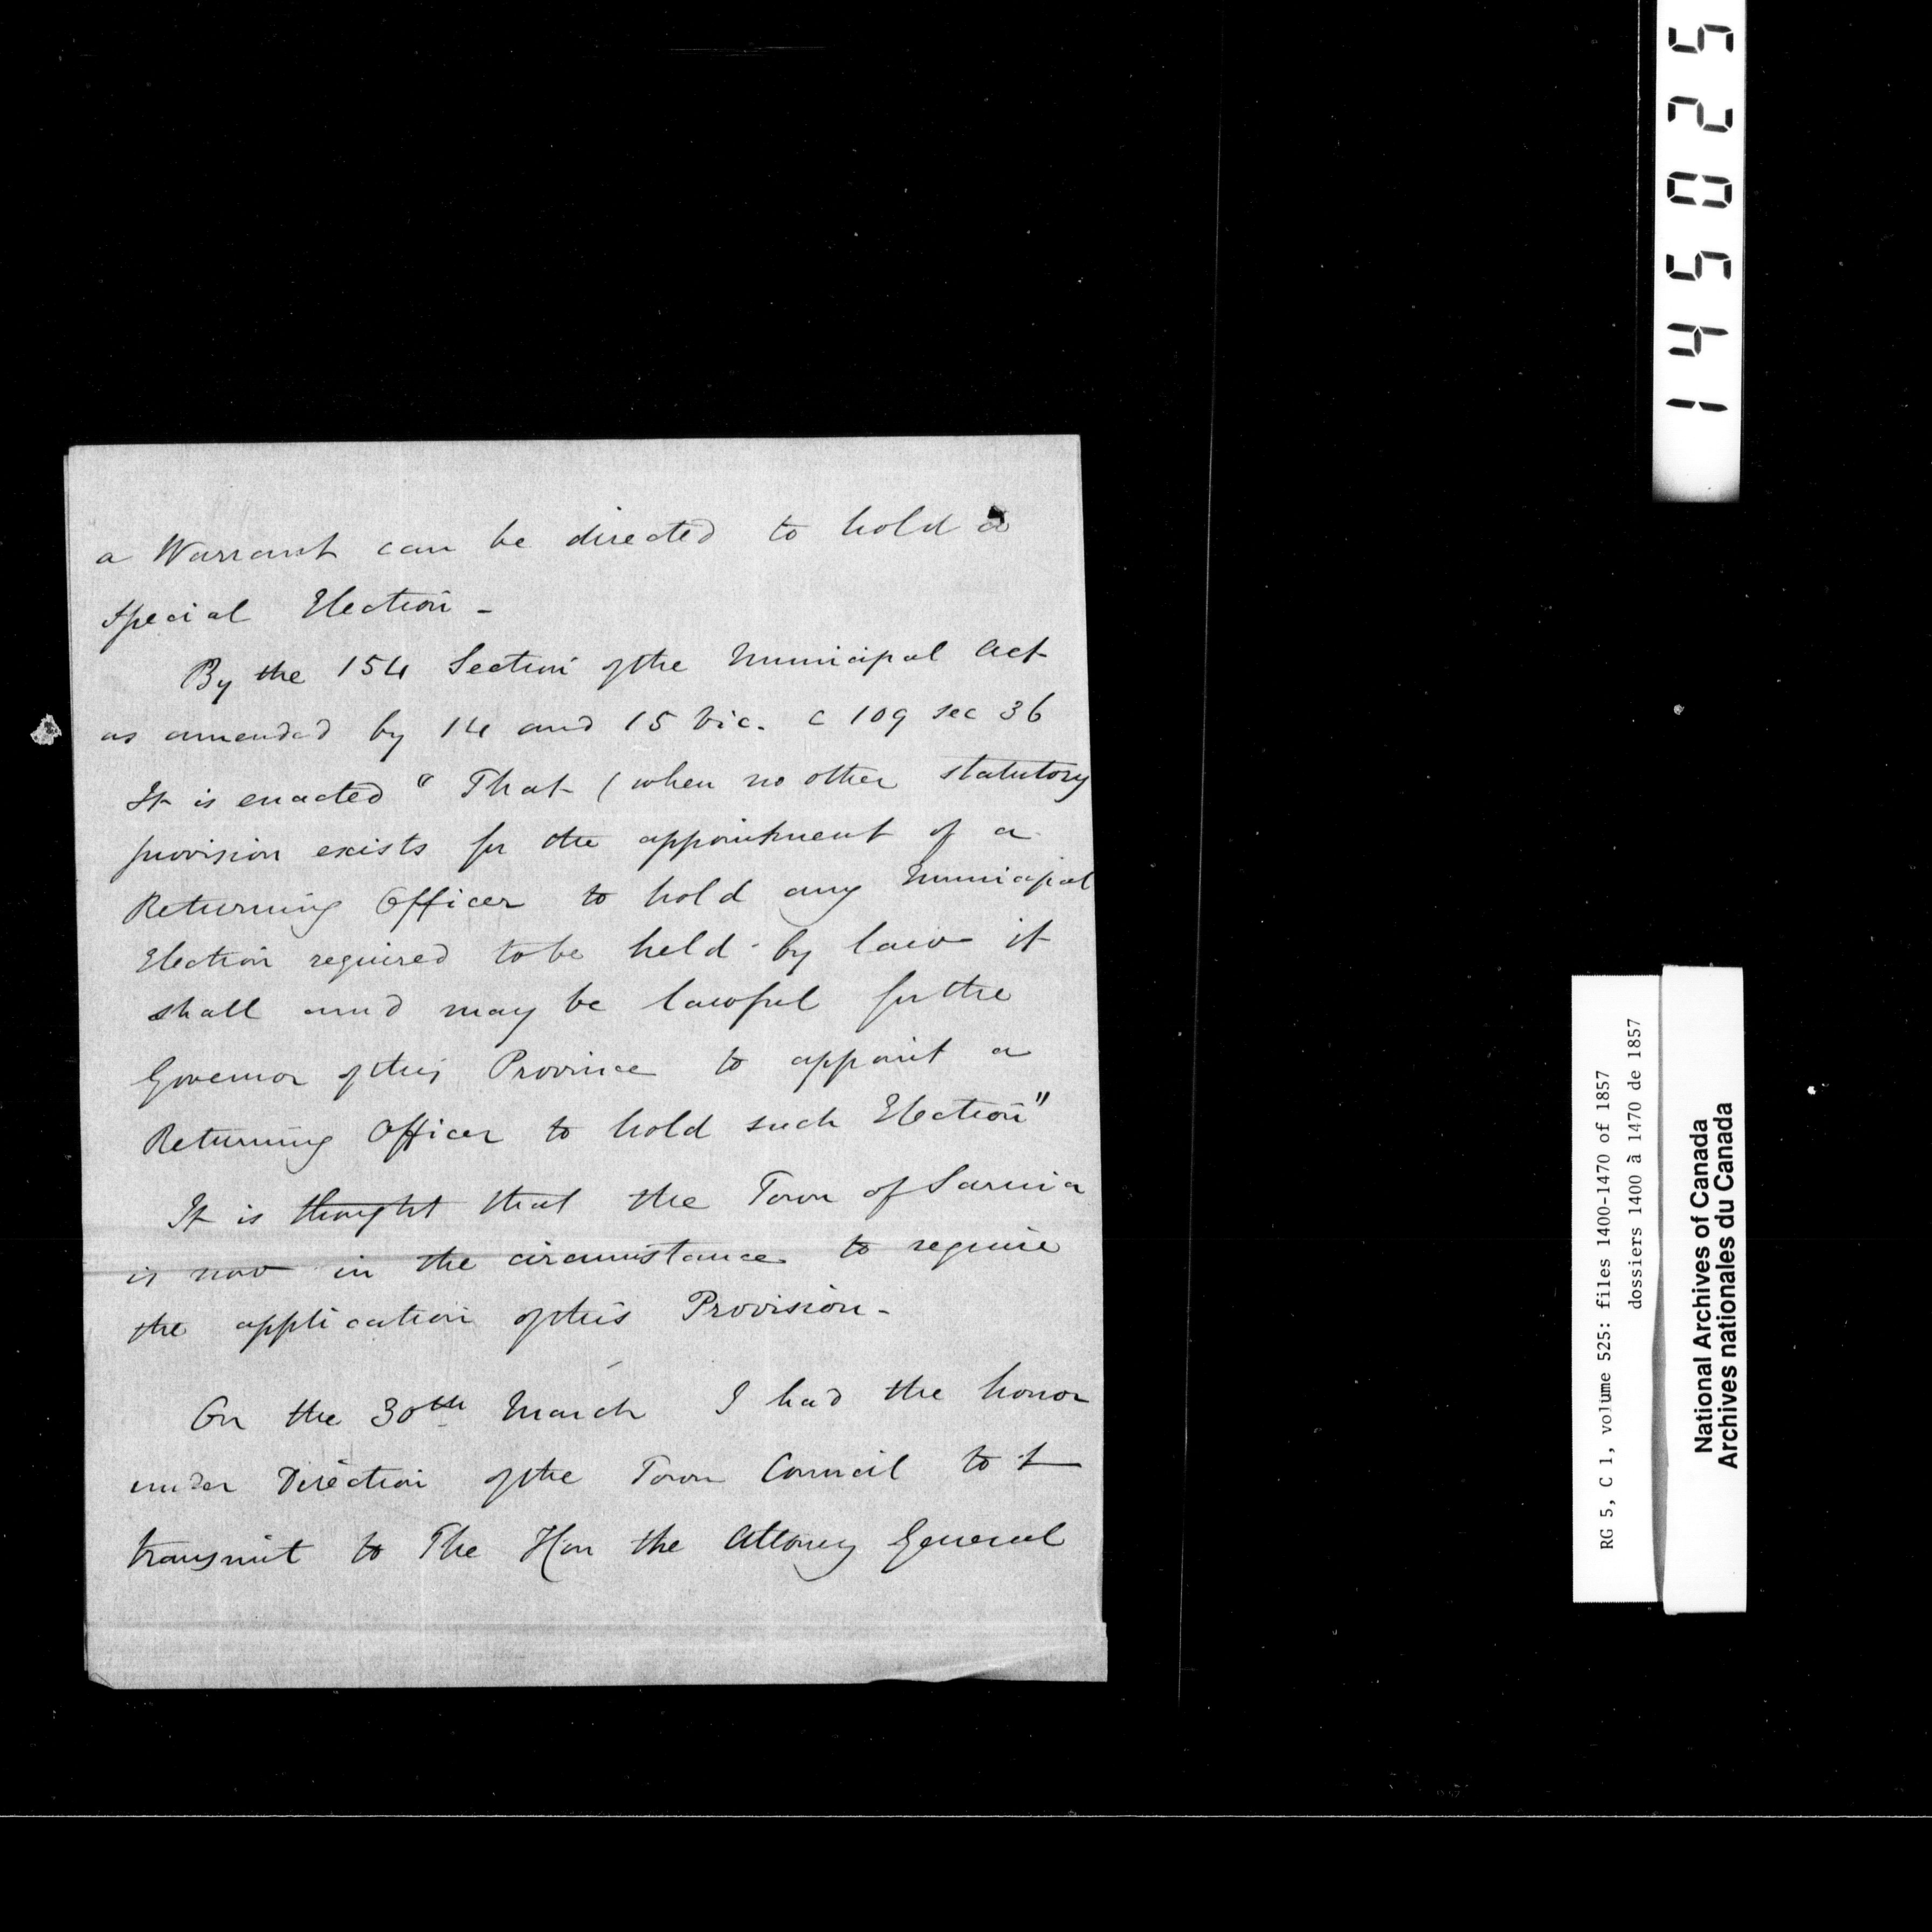 a Warrant can be directed to hold a
special Election -
By the 154 Section of the Municipal Act
as amended by 14 and 15 Vic. c 109 sec 36
It is enacted " That ( when no other statutory
provision exists for the appointment of a
Returning Officer to hold any Municipal
Election required to be held by law it
shall and may be lawful for the
Governor of this Province to appoint a
Returning Officer to hold such Election"
It is thought that the Town of Sarnia
is now in the circumstance to require
the application of this Provision -
On the 30th March I had the honor
under Direction of the Town Council to t
transmit to The Hon the Attorney General
145025
RG 5, C 1, volume 525: files 1400-1470 of 1857
dossiers 1400 à 1470 de 1857
National Archives of Canada
Archives nationales du Canada